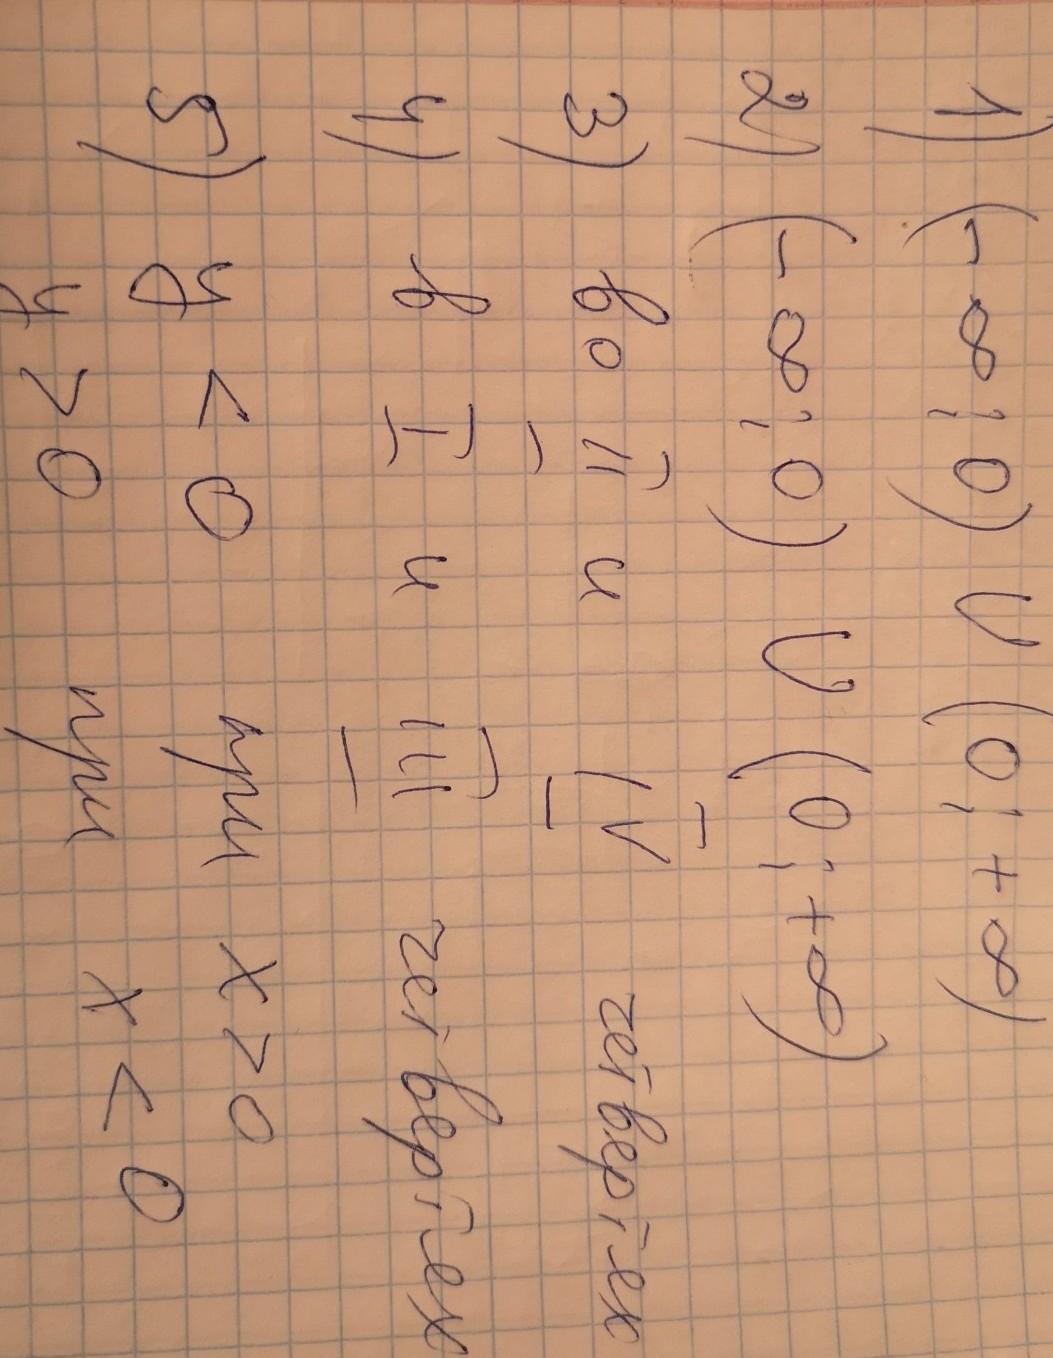 1) (-∞; 0) U (0; +∞)
2) (-∞; 0) U (0; +∞)
3) во II и IV четвертях
4) в I и III четвертях
5) y < 0 при x > 0
y > 0 при x < 0